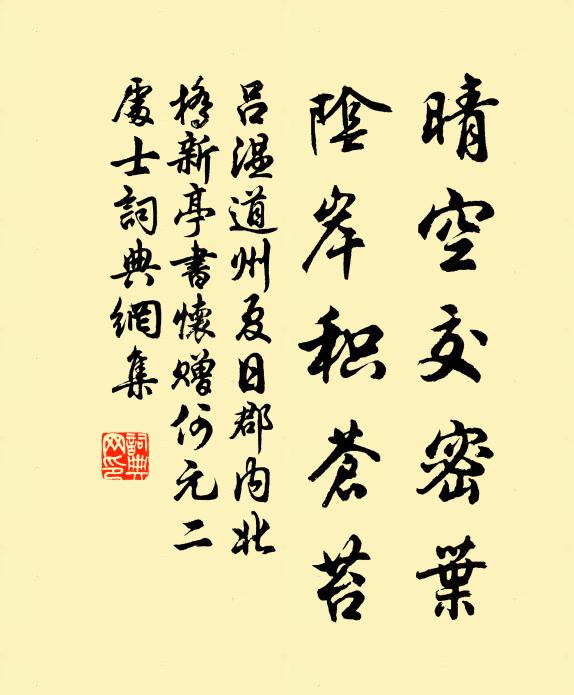 晴空交密葉
陰岸积蒼苔
呂溫道州夏日郡內北
橋新亭書懷贈何元二
處士詞典網集
詞典網印